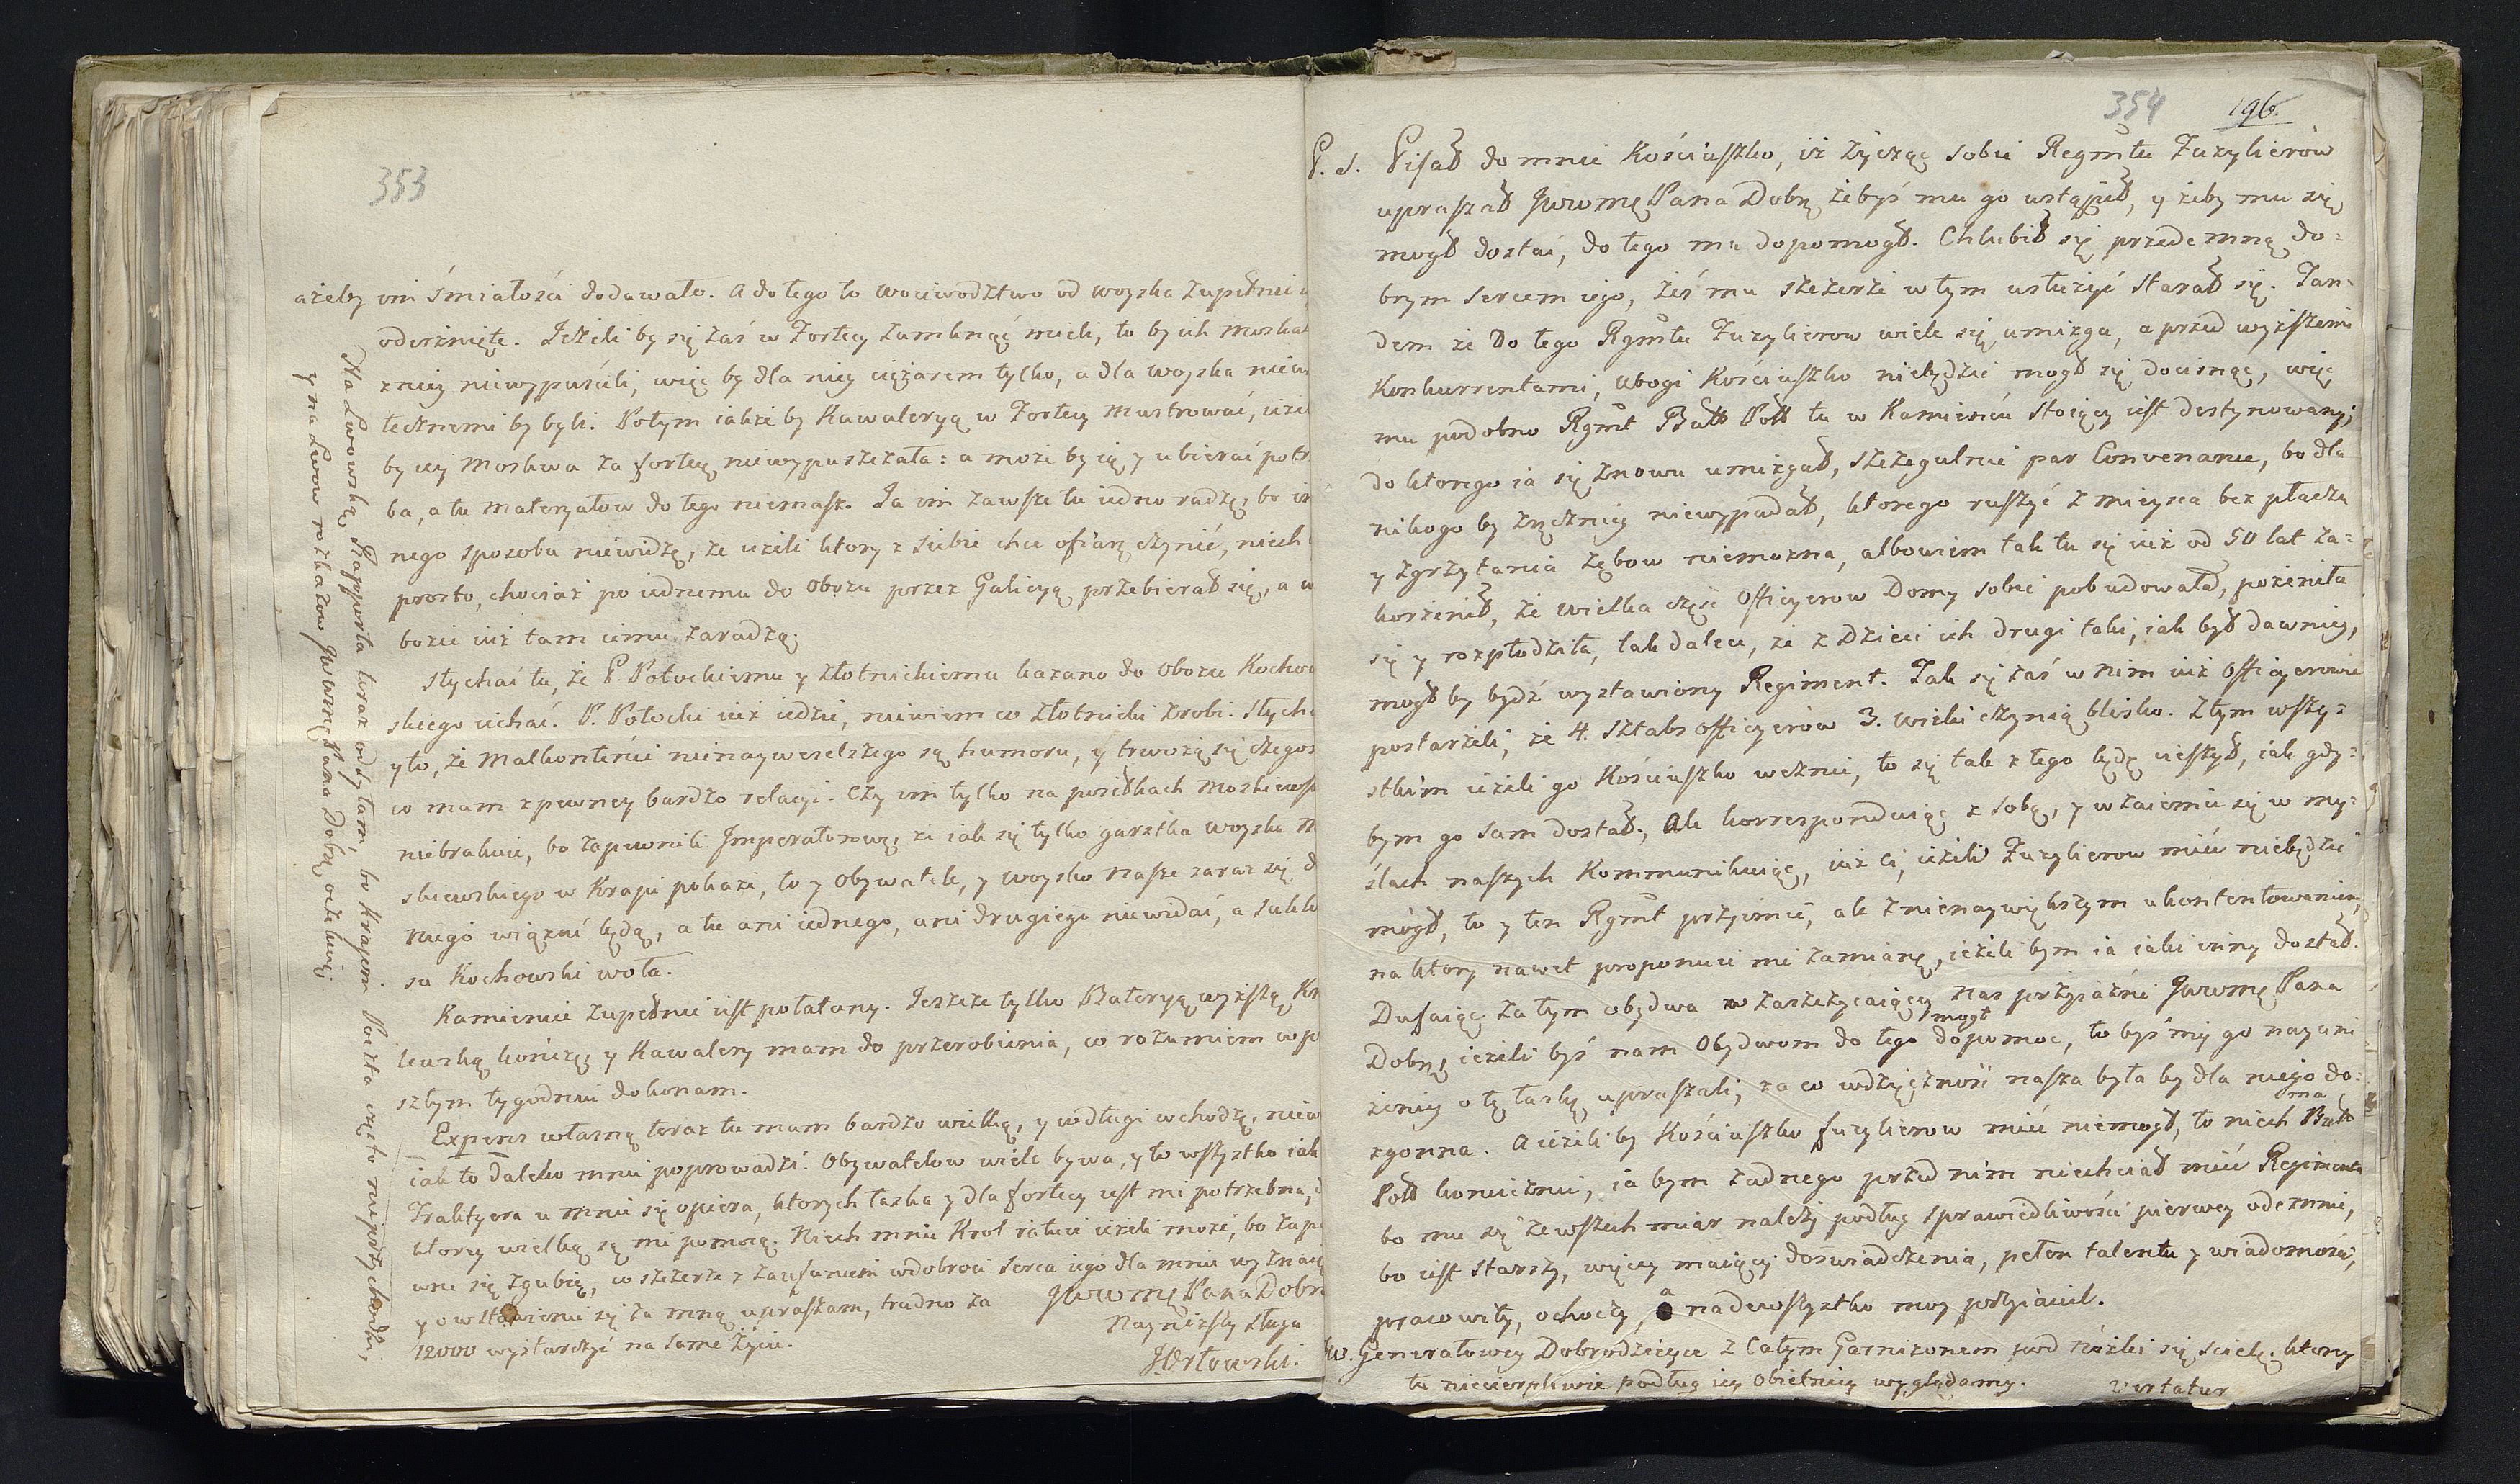 353
ażeby im śmiałości dodawało. A do tego to Woiewodztwo od woyska zupełnie
oderznięte. Jeżeli by się zaś w Fortecy zamknąć mieli, to by ich Moskal
z niey niewypuścili, więc by dla niey ciężarem tylko, a dla woyska nieu
tecznemi by byli. Potym iakże by Kawaleryą w Fortecy mustrować, ieże
by iey Moskwa za fortecę niewypuszczała: a może by ią y ubierać potr
ba, a tu materyałow do tego niemasz. Ja im zawsze tu iedno radzę, bo in
nego sposobu niewidzę, że ieżeli ktory z siebie chce ofiarę czynić, niech
prosto, chociaż po iednemu do Obozu przez Galicyą przebierał się, a w
bozie iuż tam iemu zaradzą.
Słychać tu, że P. Potockiemu y Złotnickiemu kazano do Obozu Kochow
skiego iechać. P. Potocki iuż iedzie, niewiem co Złotnicki zrobi. Słycha
y to, że Malkontenci nienayweselszego są humoru, y trwożą się czegoś
co mam z pewney bardzo relacyi. Czy im tylko na posiłkach Moskiewsk
niebrakuie, bo zapewnili Imperatorowę, że iak się tylko garstka woyska M
skiewskiego w Kraju pokaże, to y Obywatele, y woysko nasze zaraz się d
niego wiązać będą, a tu ani iednego, ani drugiego niewidać, a sukku
su Kochowski woła.
Kamieniec zupełnie iest połatany. Jeszcze tylko Bateryą wyższą Kr
lewską kończę, y Kawalery mam do przerobienia, co rozumiem w p
szłym tygodniu dokonam.
Expens własną teraz tu mam bardzo wielką, y w długi wchodzę, niew
iak to daleko mnie poprowadzi. Obywatelow wiele bywa, y to wszystko iak
Traktyera u mnie się opiera, ktorych łaska y dla fortecy iest mi potrzebna,
ktorzy wielką są mi pomocą. Niech mnie Krol ratuie ieżeli może, bo zape
wne się zgubię, co szczerze z zaufaniem w dobroci serca iego dla mnie wyznaię
y o wstawienie się za mną upraszam, trudno za
12000 wystarczyć na same życie.
JWWMę Pana Dobr
Nayniższy sługa
J Orłowski.
Na Lwowską Rapporta teraz odsyłam, bo Krajem Poczta często nieprzychodzi,
y na Lwow rozkazow JWWMę Pana Dobrę oczekuię
354 196.
P. S. Pisał do mnie Kościuszko, iż życząc sobie Regmtu Fuzylierow
upraszał JWWMę Pana Dobrę, żebyś mu go ustąpił, y żeby mu się
mogł dostać, do tego mu dopomogł. Chlubił się przedemną do=
brym sercem iego, żeś mu szczerze w tym usłużyć starał się. Zan=
dem że Do tego Rgmtu Fuzylierow wiele się umizga, a przed wyższemi
Konkurrentami, ubogi Kościuszko niebędzie mogł się docisnąc, więc
mu podobno Rgmt Butt Poll tu w Kamieńcu stoiący iest destynowany;
do ktorego ia się znowu umizgał, szczegulnie par Convenance, bo dla
nikogo by zręczniey niewypadał, ktorego ruszyć z mieysca bez płaczu
y zgrzytania zębow niemożna, albowiem tak tu się iuż od 50 lat za=
korzenił, że wielka część Officyerow Domy sobie pobudowała, pożeniła
się y rozpłodziła, tak dalece, że z Dzieci ich drugi taki, iak był dawniey,
mogł by bydź wystawiony Regiment. Tak się zaś w nim iuż Officyerowie
postarzeli, że 4. Sztabs Officyerow 3. wieki czynią blisko. Z tym wszy=
stkim ieżeli go Kościuszko weźmie, to się tak z tego będę cieszył, iak gdy=
bym go sam dostał. Ale korrespondując z sobą, y wzaiemie się w my=
ślach naszych Kommunikuiąc, iuż ci, ieżeli Fuzylierow mieć niebędzie
mógł, to y ten Rgmt przyimie, ale z nienaywiększym ukontentowaniem,
na ktory nawet proponuie mi zamianę, ieżeli bym ia iaki inny dostał.
Dufaiąc za tym obydwa w zaszczycaiącey nas przyiaźni JWWMę Pana
Dobrę, ieżeli byś nam Obydwom do tego mogł dopomoc, to byśmy go nayuni
żeniey o tę łaskę upraszali; za co wdzięczność nasza była by dla niego do=
zgonna. A ieżeli by Kościuszko fuzylierow mieć niemogł, to niech ma Butt
Poll koniecznie, ia bym żadnego przed nim niechciał mieć Regimentu
bo mu się ze wszech miar należy podług sprawiedliwości pierwey odemnie,
bo iest starszy, więcey maiący doswiadczenia, pełen talentu y wiadomości,
pracowity, ochoczy, a nadewszystko moy przyiaciel.
JW. Generałowey Dobrodzieyce z Całym Garnizonem pod nóżki się scielę. ktorey
tu niecierpliwie podług iey Obietnicy wyglądamy. vertatur